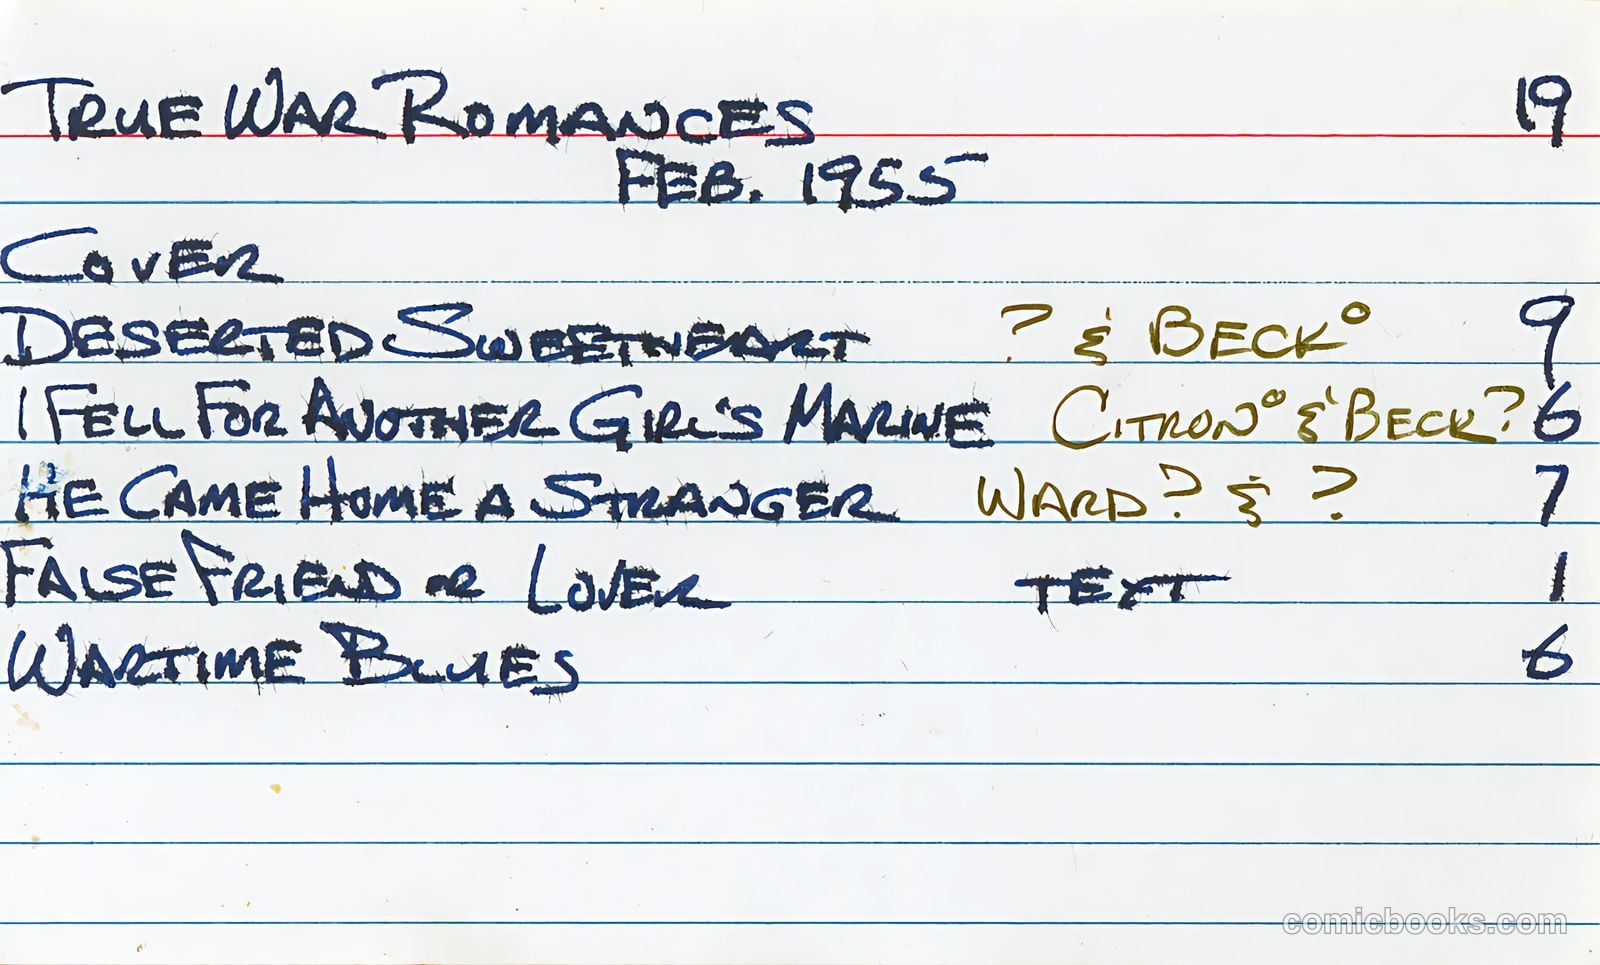 TRUE WAR ROMANCES 19
FEB. 1955
COVER
DESERTED SWEETHEART ? & BECK° 9
I FELL FOR ANOTHER GIRL'S MARINE CITRON° & BECK? 6
HE CAME HOME A STRANGER WARD? & ? 7
FALSE FRIEND OR LOVER TEXT 1
WARTIME BLUES 6
comicbooks.com